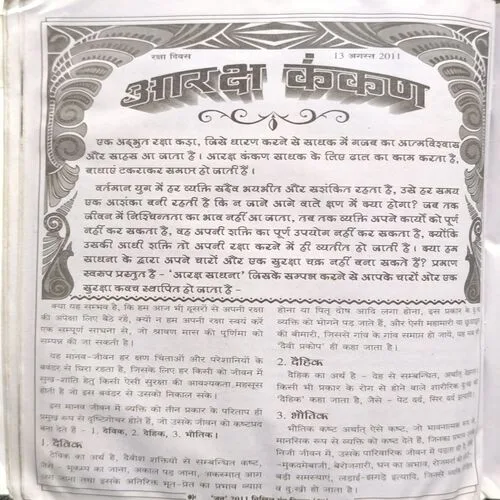 रक्षा दिवस
13 अगस्त 2011
आरक्ष कंकण
एक अद्भुत रक्षा कड़ा, जिसे धारण करने से साधक में गजब का आत्मविश्वास
और साहस आ जाता है। आरक्ष कंकण साधक के लिए ढाल का काम करता है,
बाधाएं टकराकर समाप्त हो जाती हैं।
वर्तमान युग में हर व्यक्ति सदैव भयभीत और सशंकित रहता है, उसे हर समय
एक आशंका बनी रहती है कि न जाने आने वाले क्षण में क्या होगा? जब तक
जीवन में निश्चिन्तता का भाव नहीं आ जाता, तब तक व्यक्ति अपने कार्यों को पूर्ण
नहीं कर सकता है, वह अपनी शक्ति का पूर्ण उपयोग नहीं कर सकता है, क्योंकि
उसकी आधी शक्ति तो अपनी रक्षा करने में ही व्यतीत हो जाती है। क्या हम
साधना के द्वारा अपने चारों और एक सुरक्षा चक्र नहीं बना सकते हैं? प्रमाण
स्वरूप प्रस्तुत है - 'आरक्ष साधना' जिसके सम्पन्न करने से आपके चारों ओर एक
सुरक्षा कवच स्थापित हो जाता है -
क्या यह सम्भव है, कि हम आज भी दूसरों से अपनी रक्षा
की अपेक्षा लिए बैठे रहें, क्यों न हम अपनी रक्षा स्वयं करें
एक सम्पूर्ण साधना से, जो श्रावण मास की पूर्णिमा को
सम्पन्न की जा सकती है।
यह मानव-जीवन हर क्षण चिंताओं और परेशानियों के
बवंडर से घिरा रहता है, जिसके लिए हर किसी को जीवन में
सुख-शांति हेतु किसी ऐसी सुरक्षा की आवश्यकता महसूस
होती है जो इस बवंडर से उसको निकाल सके।
इस मानव जीवन में व्यक्ति को तीन प्रकार के परिताप ही
प्रमुख रूप से दृष्टिगोचर होते हैं, जो उसके जीवन को कष्टप्रद
बना देते हैं - 1. दैविक, 2. दैहिक, 3. भौतिक।
1. दैविक
दैविक का अर्थ है, दैवीय शक्तियों से सम्बन्धित कष्ट,
जैसे - भूकम्प का जाना, अकाल पड़ जाना, अकस्मात आग
लग जाना तथा इसके अतिरिक्त भूत-प्रेत का प्रभाव व्याप्त
होना या पितृ दोष आदि लगा होना, इस प्रकार के
व्यक्ति को भोगने पड़ जाते हैं, और ऐसी महामारी या
की बीमारी, जिससे गांव के गांव समाप्त हो जाये, यह सब
'दैवी प्रकोप' ही कहा जाता है।
2. दैहिक
दैहिक का अर्थ है - देह से सम्बन्धित, अर्थात्
किसी भी प्रकार के रोग से होने वाले शारीरिक
'दैहिक' कहा जाता है, जैसे - पेट दर्द, सिर दर्द इत्यादि।
3. भौतिक
भौतिक कष्ट अर्थात् ऐसे कष्ट, जो भावनात्मक रूप
मानसिक रूप से व्यक्ति को कष्ट देते हैं, जिनका प्रभाव
निजी व उसके पारिवारिक जीवन में पड़ता
-मुकदमेबाजी, बेरोजगारी, धन का अभाव, रोजमर्रा की
बड़ी समस्याएं, लड़ाई-झगड़े इत्यादि, जिससे व्यक्ति
व दुःखी हो जाता है।